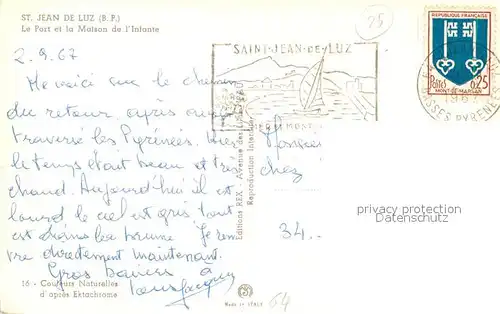 ST. JEAN DE LUZ (B. P.)
Le Port et la Maison de l'Infante
25
2.9.67
Me voici sur le chemin
du retour, après avoir
traversé les Pyrénées. Hier
le temps était beau et très
chaud. Aujourd'hui il est
lourd le ciel est gris tout
est dans la brume. Je ren
tre directement maintenant.
Gros baisers à
tous Jacques
16 - Couleurs Naturelles
d'après Ektachrome
Editions REX - Avenue des
Reproduction Interdite
MADE IN ITALY
SAINT-JEAN-DE-LUZ
MER
MONT
REPUBLIQUE FRANÇAISE
POSTES 0,25
MONT-DE-MARSAN
1967
BASSES PYRENEES
chez
34.-
64
privacy protection
Datenschutz